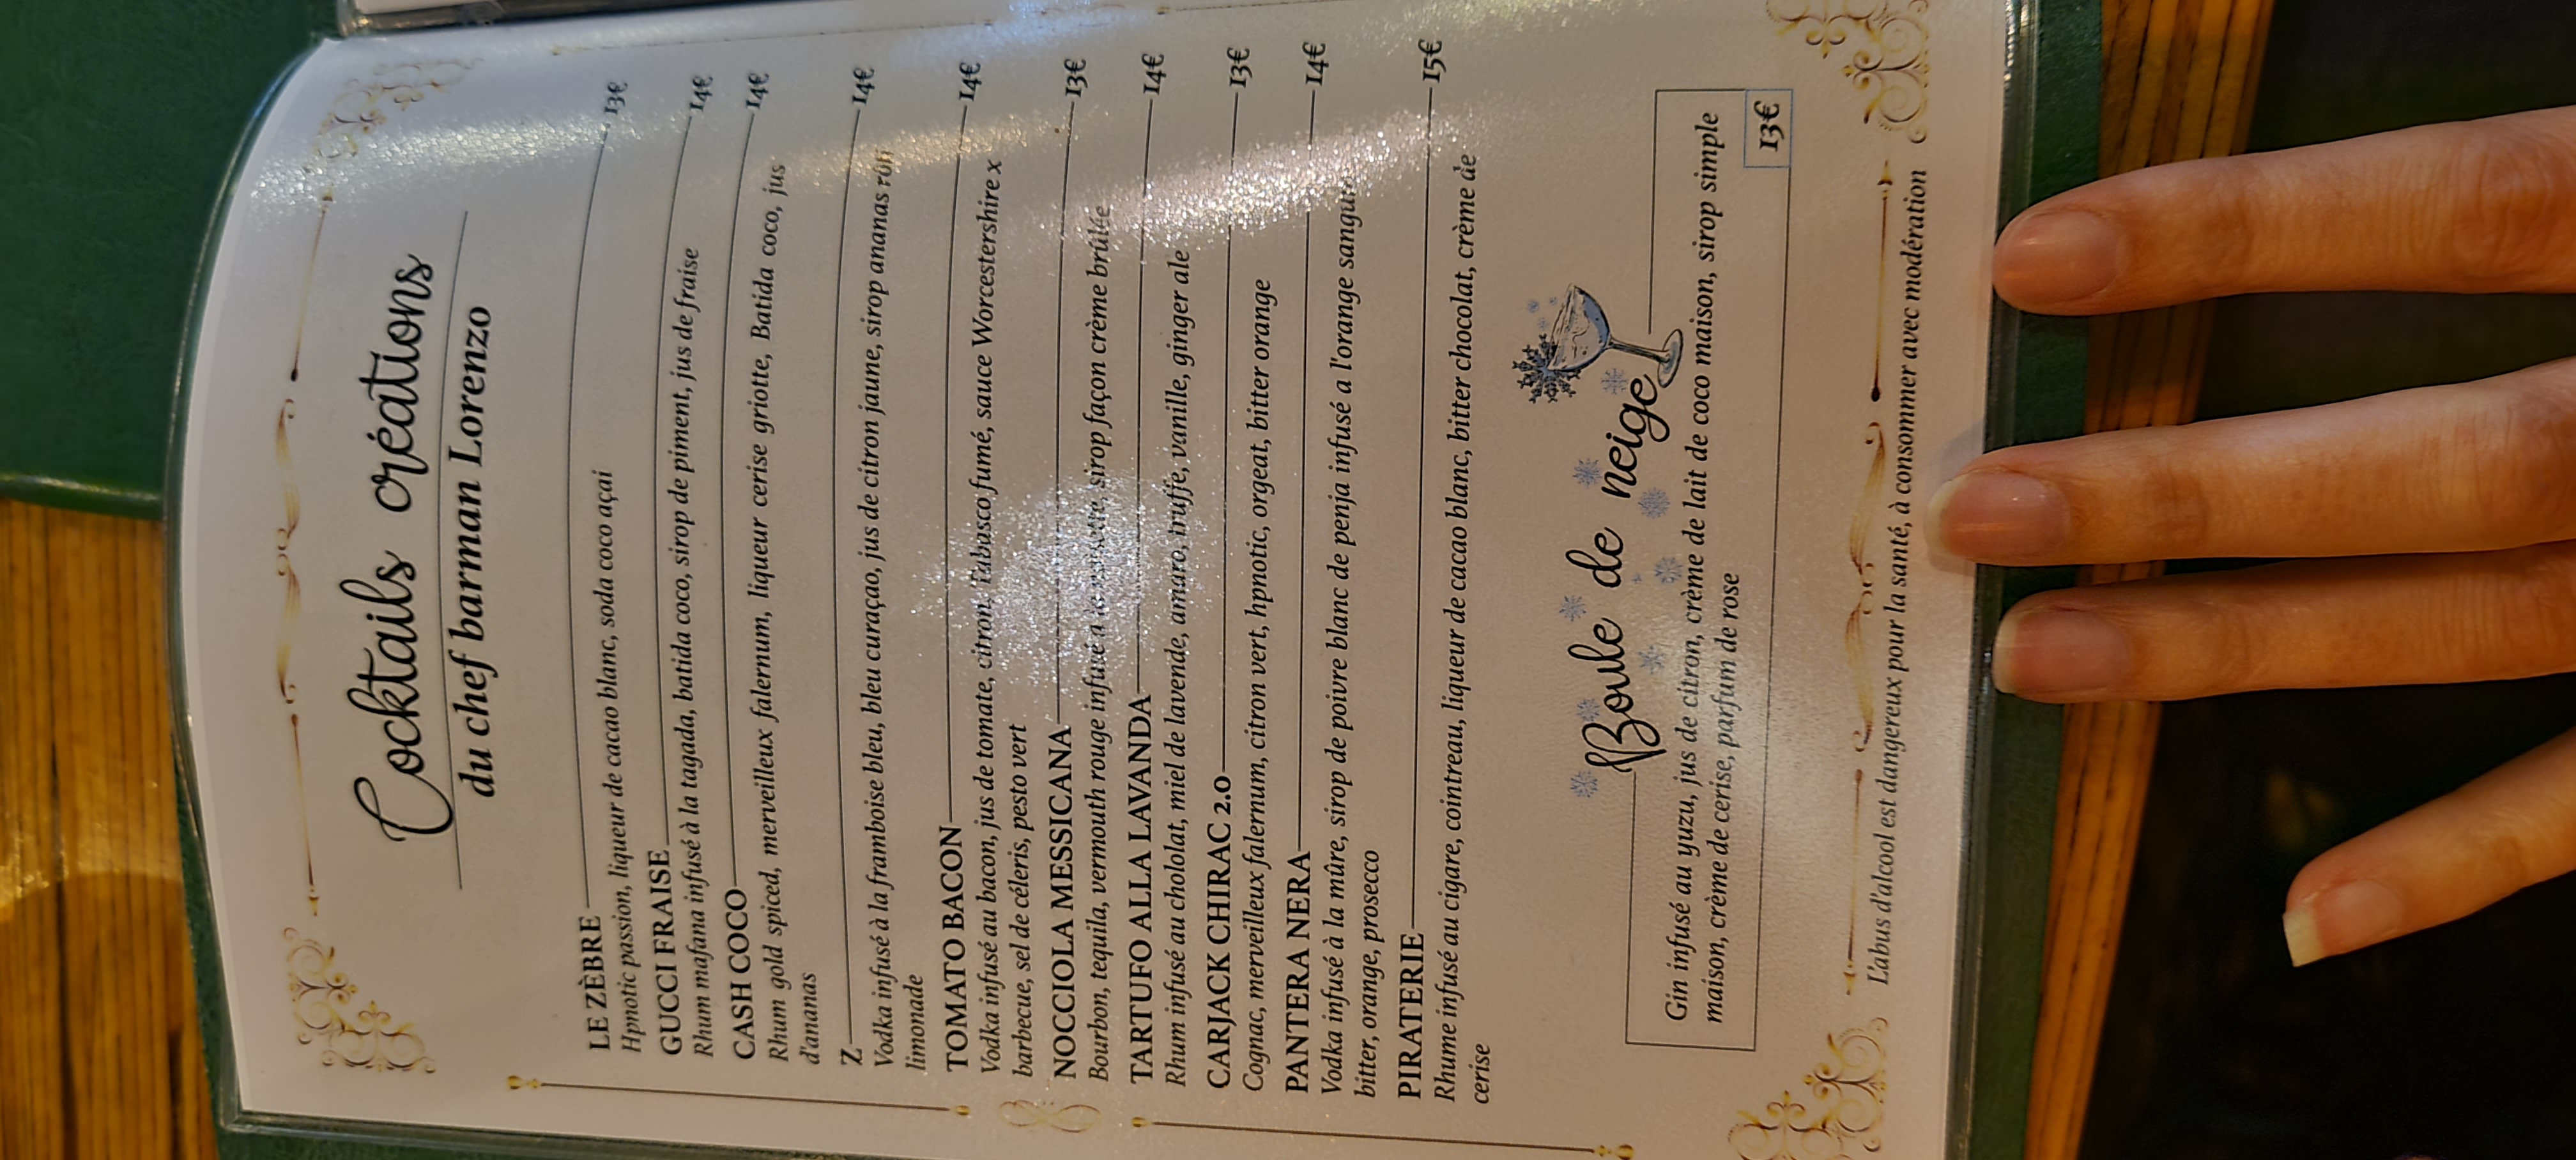 Cocktails créations
du chef barman Lorenzo
LE ZÈBRE 13€
Hpnotic passion, liqueur de cacao blanc, soda coco açai
GUCCI FRAISE 14€
Rhum mafana infusé à la tagada, batida coco, sirop de piment, jus de fraise
CASH COCO 14€
Rhum gold spiced, merveilleux falernum, liqueur cerise griotte, Batida coco, jus
d'ananas
Z 14€
Vodka infusé à la framboise bleu, bleu curaçao, jus de citron jaune, sirop ananas rôti
limonade
TOMATO BACON 14€
Vodka infusé au bacon, jus de tomate, citron, Tabasco fumé, sauce Worcestershire x
barbecue, sel de céleris, pesto vert
NOCCIOLA MESSICANA 13€
Bourbon, tequila, vermouth rouge infusé a la sirop façon crème brûlée
TARTUFO ALLA LAVANDA 14€
Rhum infusé au chololat, miel de lavende, amaro, truffe, vanille, ginger ale
CARJACK CHIRAC 2.0 13€
Cognac, merveilleux falernum, citron vert, hpnotic, orgeat, bitter orange
PANTERA NERA 14€
Vodka infusé à la mûre, sirop de poivre blanc de penja infusé a l'orange
bitter, orange, prosecco
PIRATERIE 15€
Rhume infusé au cigare, cointreau, liqueur de cacao blanc, bitter chocolat, crème de
cerise
Boule de neige
Gin infusé au yuzu, jus de citron, crème de lait de coco maison, sirop simple
maison, crème de cerise, parfum de rose
13€
L'abus d'alcool est dangereux pour la santé, à consommer avec modération